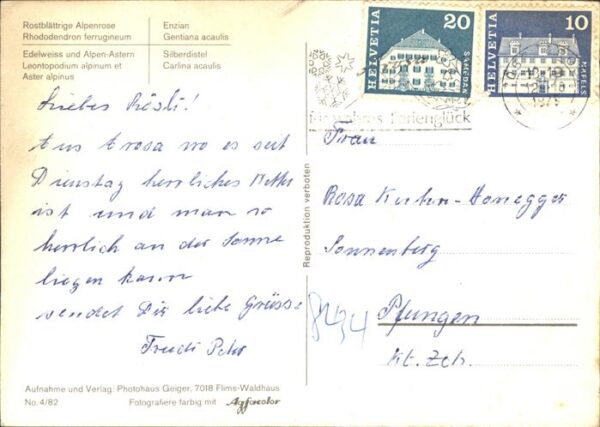 Rostblättrige Alpenrose
Rhododendron ferrugineum
Enzian
Gentiana acaulis
Edelweiss und Alpen-Astern
Leontopodium alpinum et
Aster alpinus
Silberdistel
Carlina acaulis
Liebes Rösli!
Aus Arosa wo es seit
Dienstag herrliches Wetter
ist und man so
herrlich an der Sonne
liegen kann
sendet Dir liebe Grüsse
Trudi
Aufnahme und Verlag: Photohaus Geiger, 7018 Flims-Waldhaus
No. 4/82
Fotografiere farbig mit Agfacolor
Reproduktion verboten
HELVETIA
20
SAMEDAN
HELVETIA
10
NÄFELS
ferienglück
Frau
Rosa Kuhn-Honegger
Sonnenberg
Pfungen
Kt. Zch.